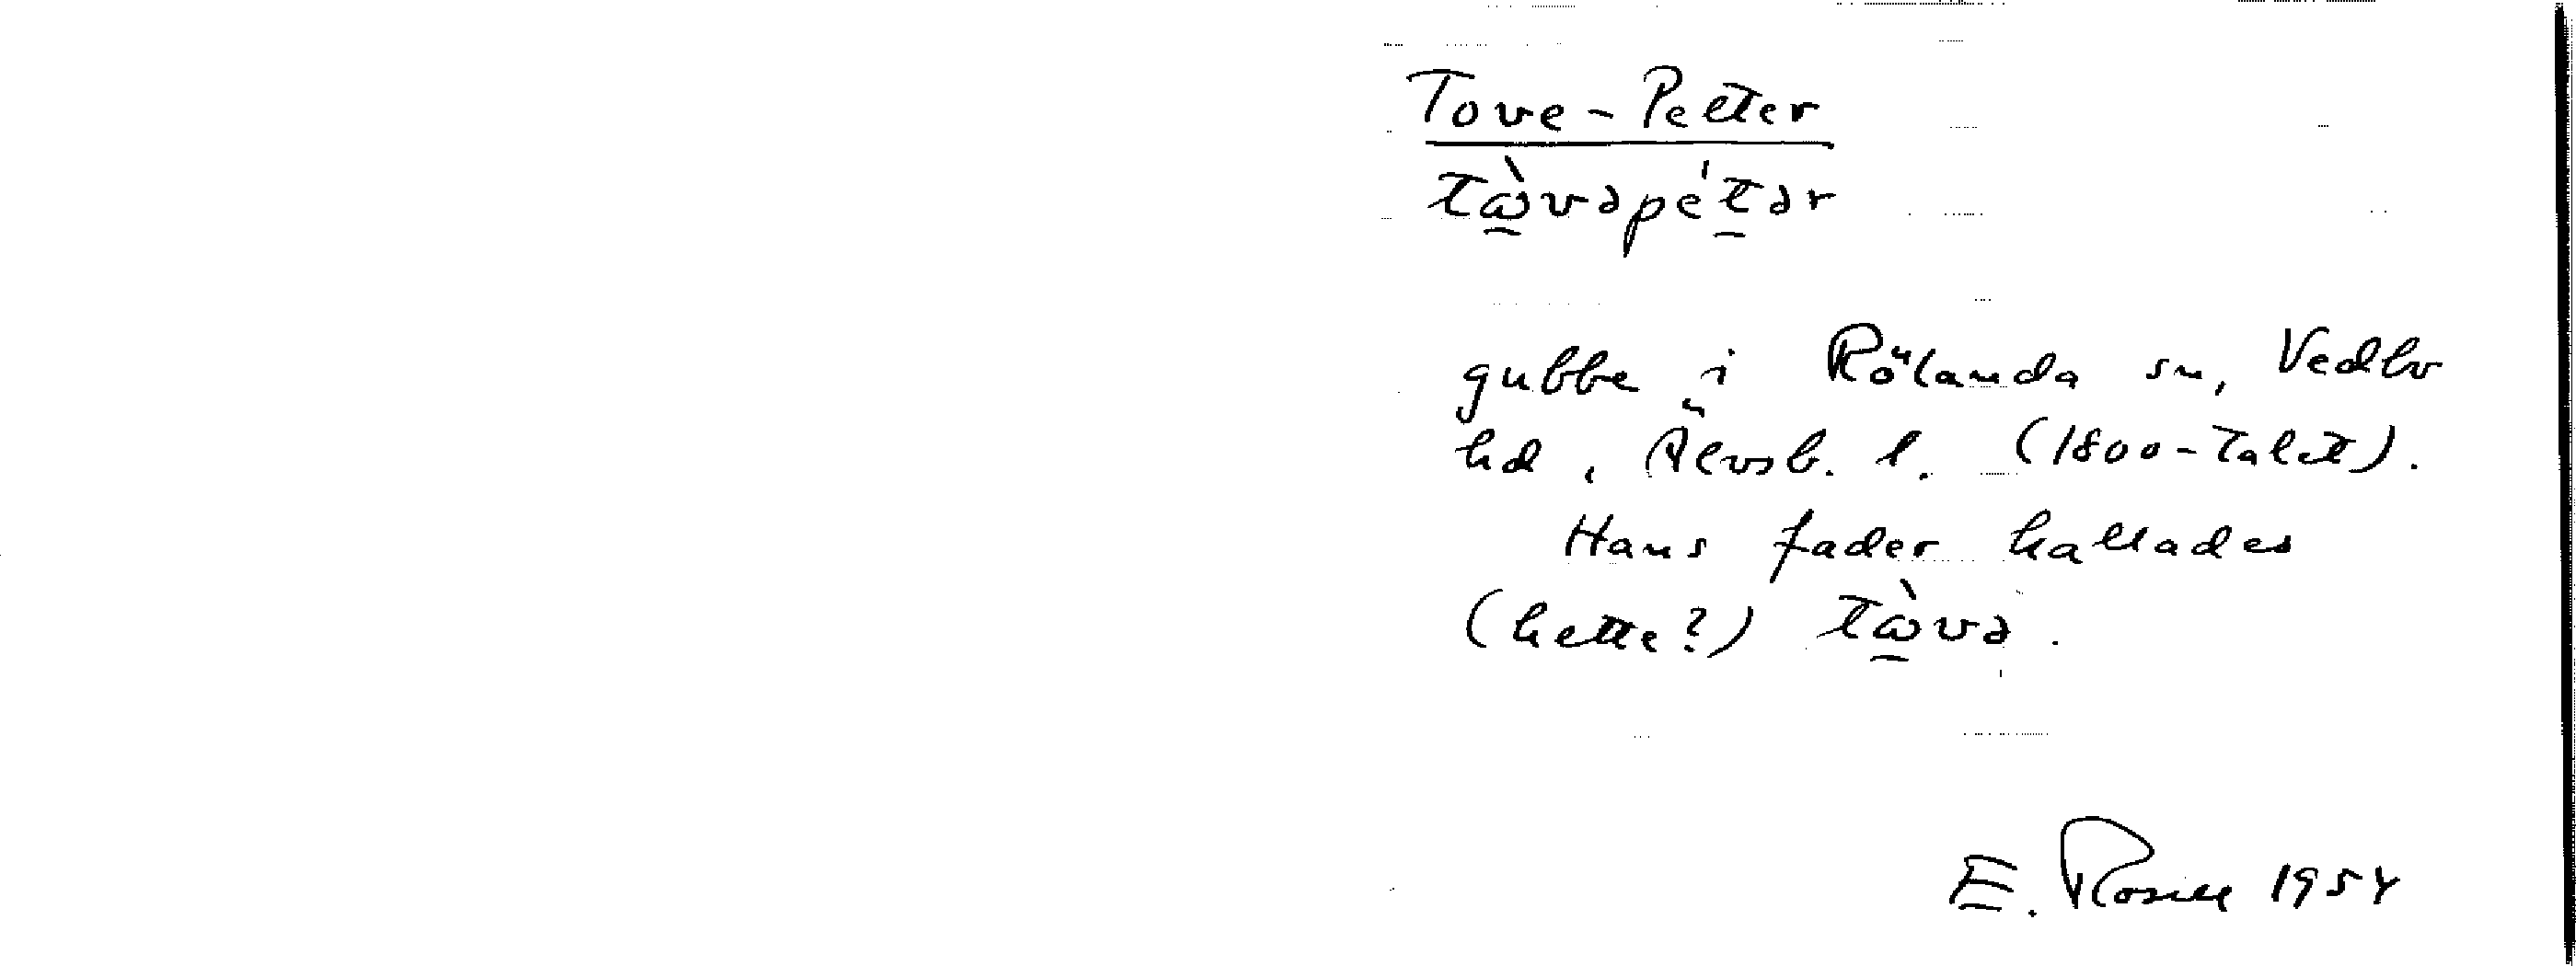 Tove-Petter
tɷ̀vəpétər
gubbe i Rölanda sn, Vedbo
hd, Älvsb. l. (1800-talet).
Hans fader kallades
(hette?) tɷ̀və.
E. Rosell 1954